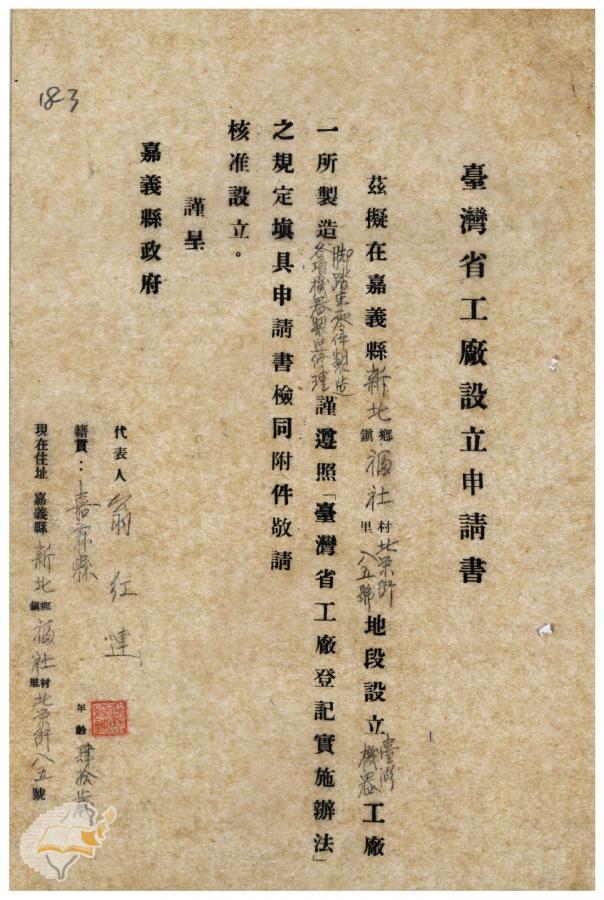 183
臺灣省工廠設立申請書
茲擬在嘉義縣新北鄉鎮福社村里北榮街八五號地段設立臺灣機器工廠
一所製造腳踏車零件製造各項機器製造修理謹遵照「臺灣省工廠登記實施辦法」
之規定塡具申請書檢同附件敬請
核准設立。
謹呈
嘉義縣政府
代表人 翁紅
籍貫：嘉義縣
年齡 肆拾歲
現在住址 嘉義縣新北鄉鎮福社村里北榮街八五號